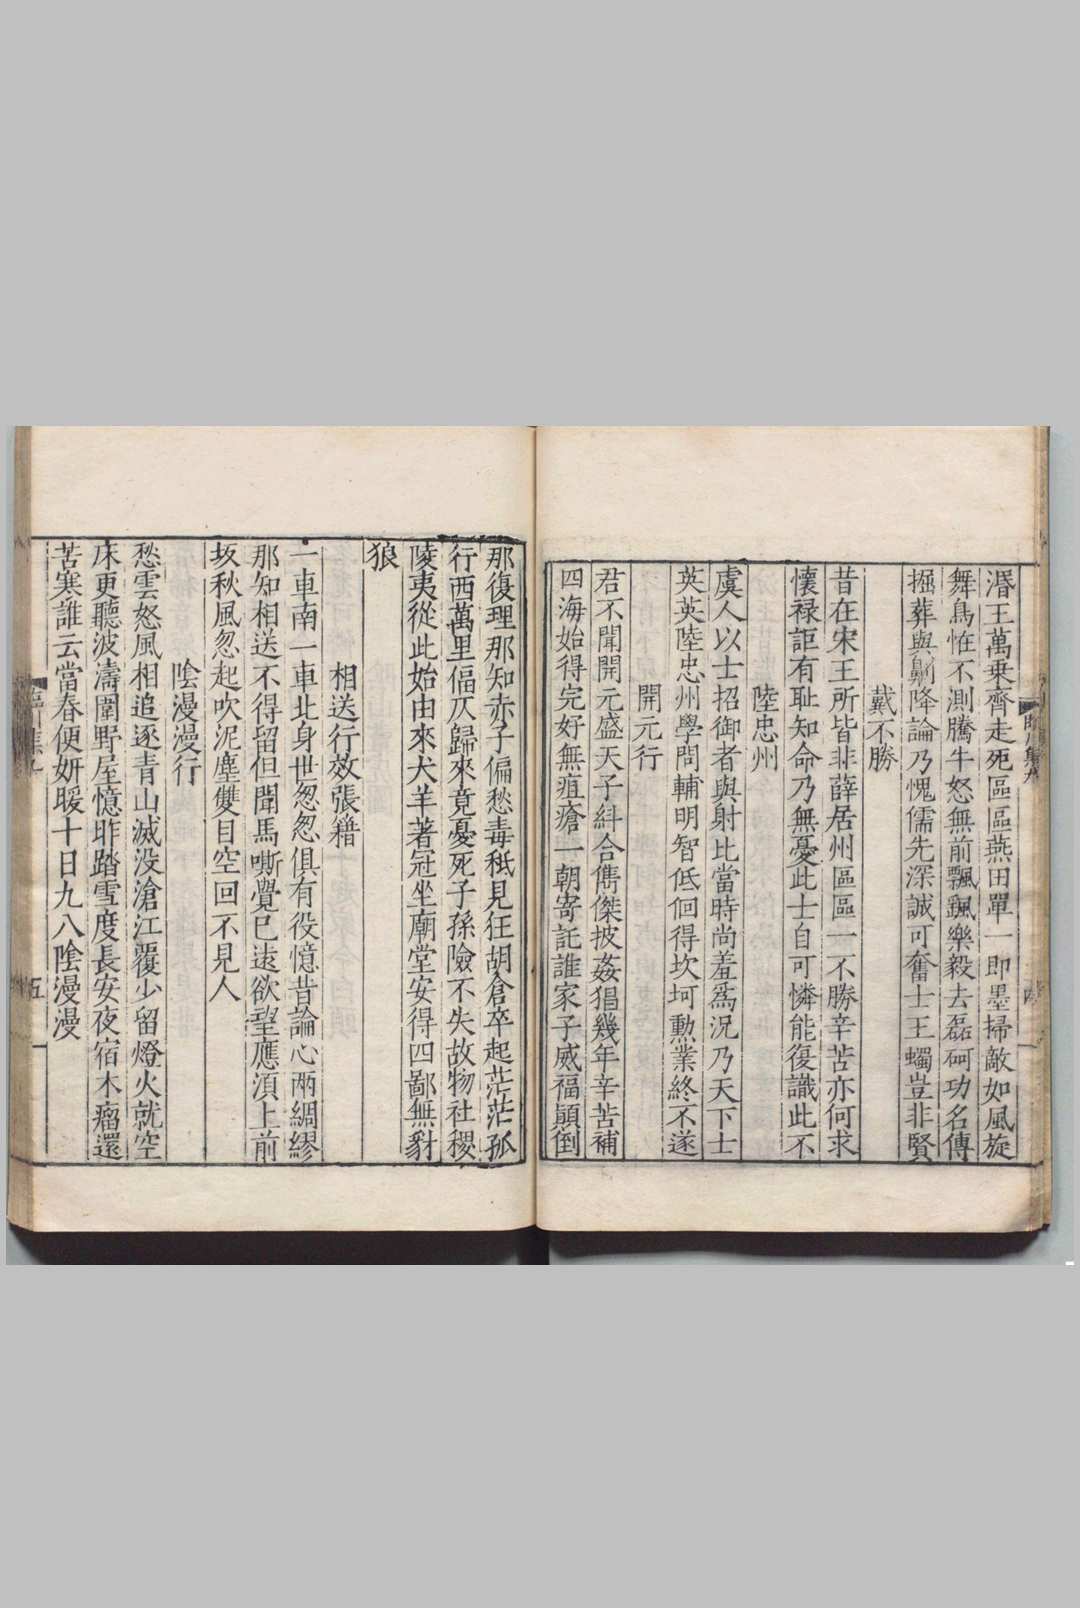 湣王萬乗齊走死區區燕田單一即墨掃敵如風旋
舞鳥恠不測騰牛怒無前飄颻樂毅去磊砢功名傳
掘葬與劓降論乃愧儒先深誠可奮士王蠋豈非賢
戴不勝
昔在宋王所皆非薛居州區區一不勝辛苦亦何求
懷禄詎有耻知命乃無憂此士自可憐能復識此不
陸忠州
虞人以士招御者與射比當時尚羞爲況乃天下士
英英陸忠州學問輔明智低佪得坎坷勲業終不遂
開元行
君不聞開元盛天子糾合儁傑披姦猖幾年辛苦補
四海始得完好無疽瘡一朝寄託誰家子威福顛倒
那復理那知赤子偏愁毒秪見狂胡倉卒起茫茫孤
行西萬里偪仄歸來竟憂死子孫險不失故物社稷
陵夷從此始由來犬羊著冠坐廟堂安得四鄙無豺
狼
相送行效張籍
一車南一車北身世怱怱俱有役憶昔論心兩綢繆
那知相送不得留但聞馬嘶覺已遠欲望應須上前
坂秋風忽起吹泥塵雙目空回不見人
陰漫漫行
愁雲怒風相追逐青山滅没滄江覆少留燈火就空
床更聽波濤圍野屋憶昨踏雪度長安夜宿木瘤還
苦寒誰云當春便妍暖十日九八陰漫漫
五